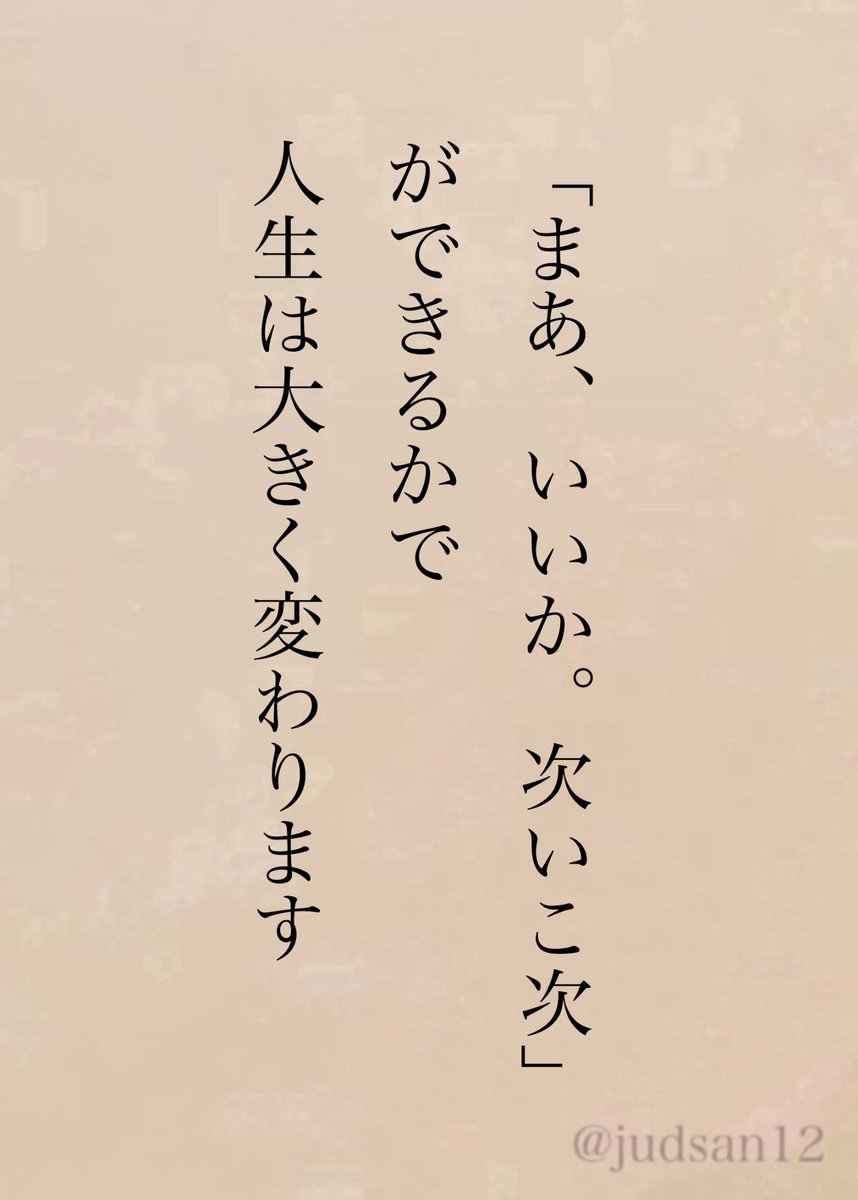 「まあ、いいか。次いこ次」
ができるかで
人生は大きく変わります
@judsan12